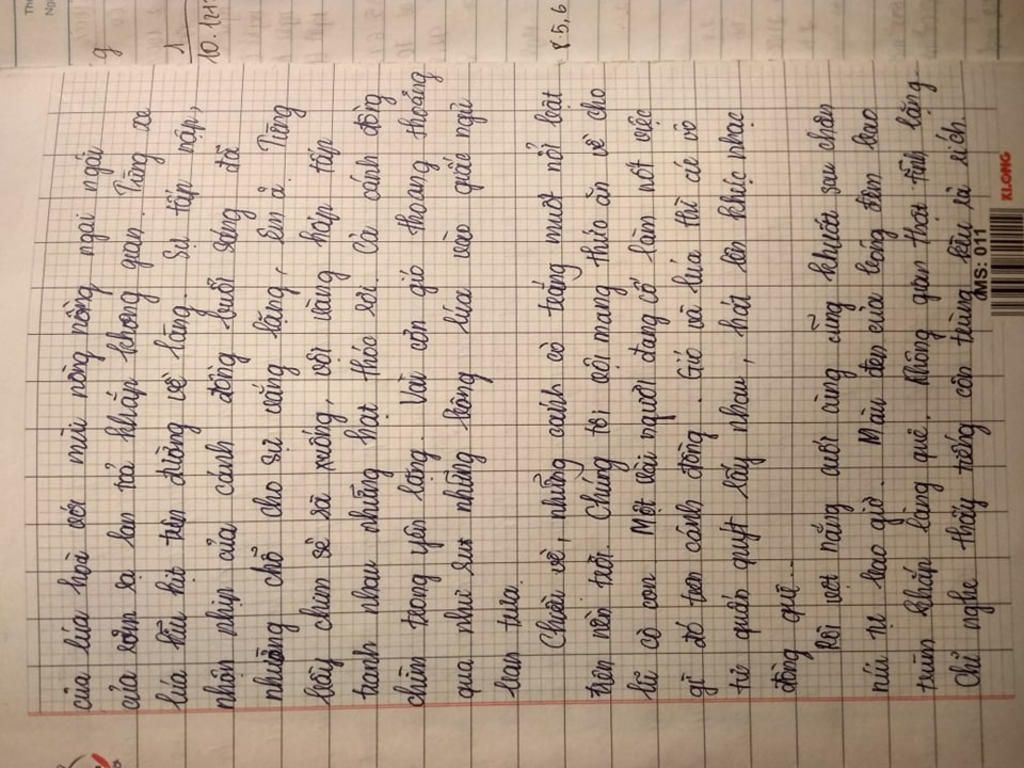 của lúa hoà với mùi nồng nồng ngai ngái
của rơm rạ lan tỏa khắp không gian. Từng xe
lúa líu kít trên đường về làng. Sự tấp nập,
nhộn nhịp của cánh đồng buổi sáng đã
nhường chỗ cho sự vắng lặng, êm ả. Từng
bầy chim sẻ sà xuống, vội vàng hấp tấp
tranh nhau những hạt thóc rơi. Cả cánh đồng
chìm trong yên lặng. Vài cơn gió thoang thoảng
qua như ru những bông lúa vào giấc ngủ
ban trưa.
Chiều về, những cánh cò trắng muốt nổi bật
trên nền trời. Chúng tôi vội mang thức ăn về cho
lũ cò con. Một vài người đang cố làm nốt việc
gì đó trên cánh đồng. Gió và lúa thì cứ vô
tư quấn quýt lấy nhau, hát lên khúc nhạc
đồng quê...
Rồi vệt nắng cuối cùng cũng khuất sau chân
núi tự bao giờ. Màn đen của bóng đêm bao
trùm khắp làng quê. Không gian thật tĩnh lặng.
Chỉ nghe thấy tiếng côn trùng kêu rả rích
g
1
10.12
8.5,6
XLONG
MS: 011